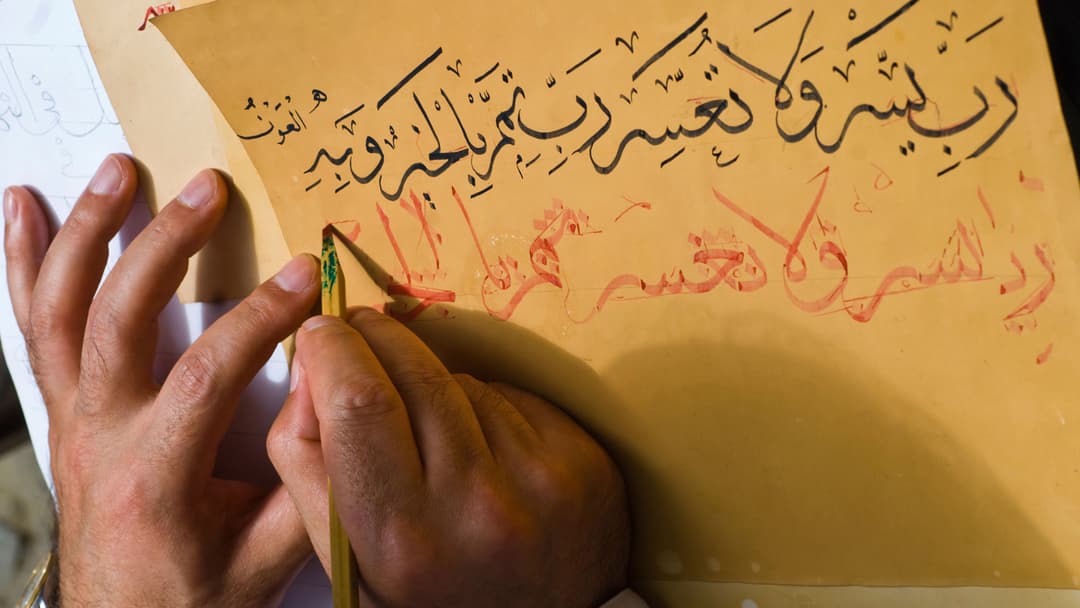 رَبِّ يَسِّرْ وَلَا تُعَسِّرْ رَبِّ تَمِّمْ بِالْخَيْرِ وَبِهِ الْعَوْنُ
رب يسر ولا تعسر تمم بالخير